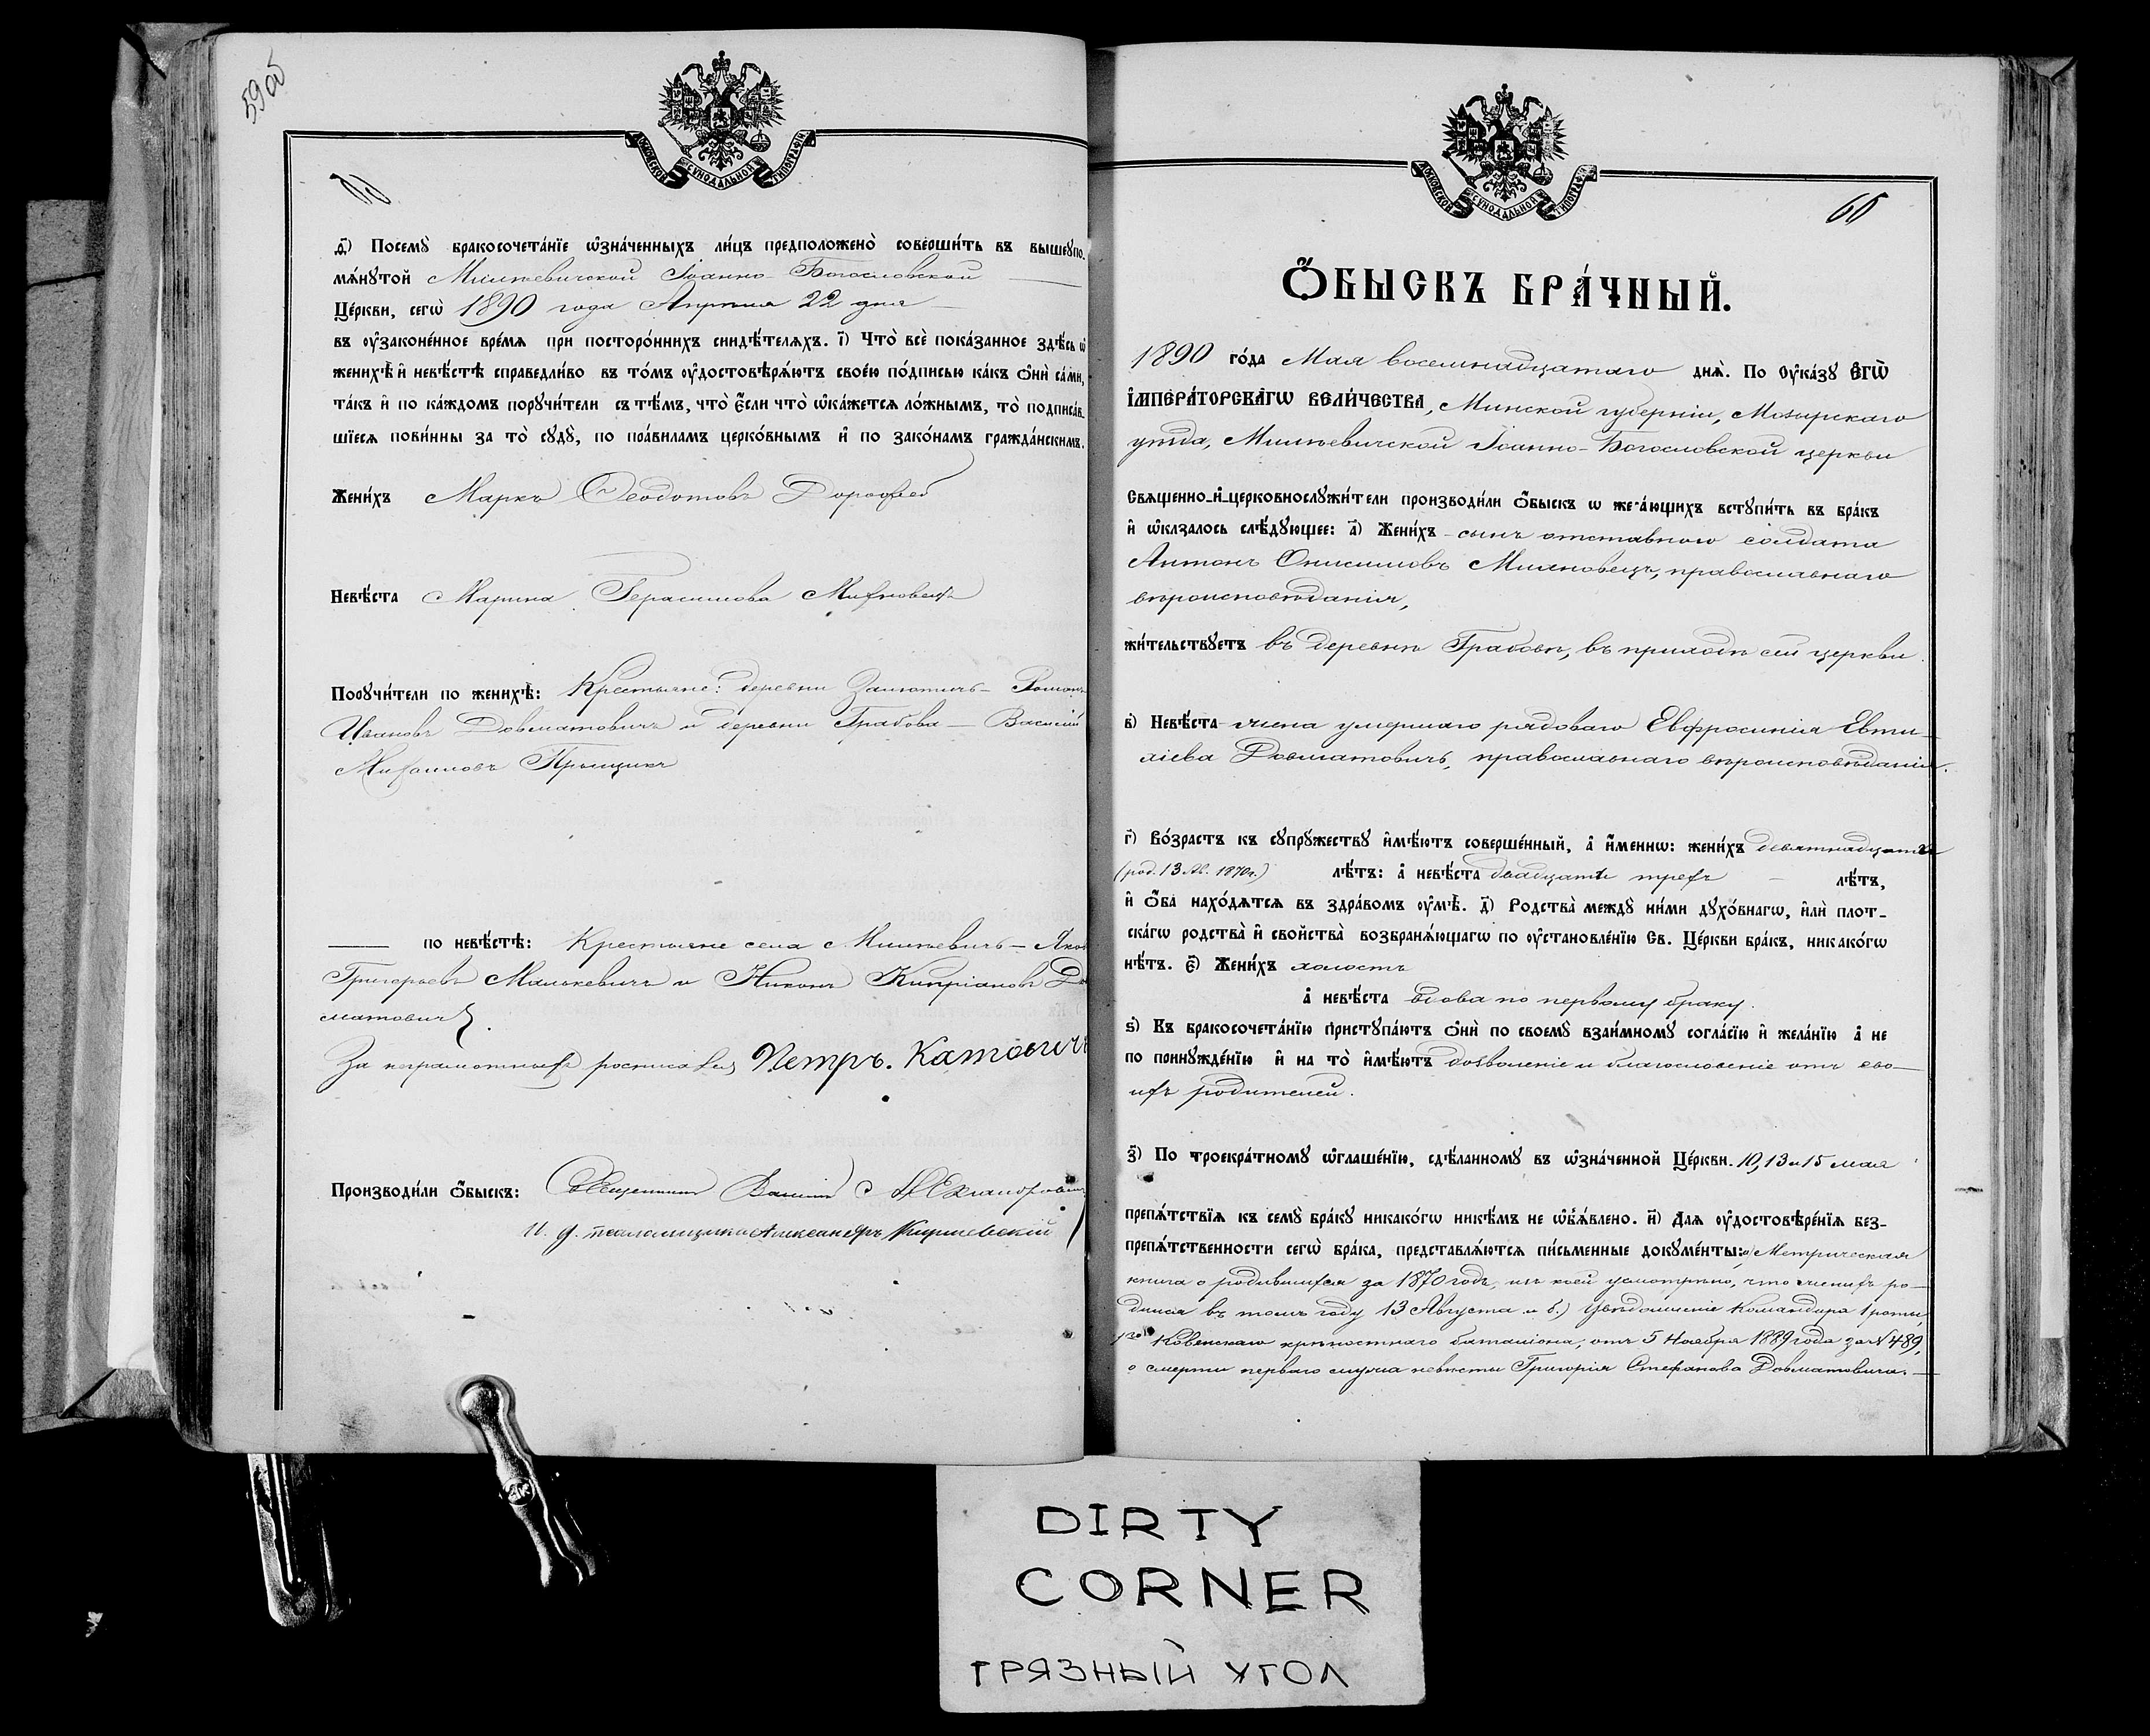 59 об
МОСКОВСКОЙ СѴНОДАЛЬНОЙ ТИПОГРАФІИ
ѳ҃) Посемꙋ̀ бракосочета́нїе ѡ҆зна́ченныхъ ли́цъ предположено̀ соверши́ть въ вышеꙋпо-
мѧ́нꙋтой Милевичской Іоанно-Богословской
Це́ркви, сегѡ̀ 1890 года Апрѣля 22 дня
въ ᲂу҆законе́нное вре́мѧ при посторо́ннихъ свидѣ́телѧхъ. і҃) Что̀ всѐ пока́занное здѣ́сь ѡ҆
женихѣ̀ и҆ невѣ́стѣ справедли́во въ то́мъ ᲂу҆достовѣрѧ́ютъ свое́ю по́дписью ка́къ ѻ҆нѝ са́ми,
та́къ и҆ по ка́ждомъ порꙋчи́тели съ тѣ́мъ, что̀ є҆́сли что̀ ѡ҆ка́жетсѧ ло́жнымъ, то̀ подписа́в-
шїесѧ пови́нны за то̀ сꙋдꙋ̀, по пра́виламъ церко́внымъ и҆ по зако́намъ гражда́нскимъ.
Жени́хъ Маркъ Ѳеодотовъ Дорофей
Невѣ́ста Марина Герасимова Михновецъ
Порꙋчи́тели по женихѣ̀: Крестьяне: деревни Залютичъ - Роман
Ивановъ Довматовичъ и деревни Грабова - Василій
Михаиловъ Прыщикъ
по невѣ́стѣ: Крестьяне села Милевичъ - Яков
Григорьевъ Малькевичъ и Никонъ Кипріановъ До
матовичъ.
За неграмотныхъ росписался Петръ. Катович
Производи́ли ѻ҆́быскъ: Священникъ
И. д. псаломщика Александръ
МОСКОВСКОЙ СѴНОДАЛЬНОЙ ТИПОГРАФІИ
60
Ѻ҆́БЫСКЪ БРА́ЧНЫЙ.
1890 го́да Мая восемнадцатаго днѧ̀. По ᲂу҆ка́зꙋ Є҆ГѠ̀
І҆МПЕРА́ТОРСКАГѠ ВЕЛИ́ЧЕСТВА, Минской губерніи, Мозырскаго
уѣзда, Милевичской Іоанно-Богословской церкви
Свѧщенно- и҆ церковнослꙋжи́тели производи́ли ѻ҆́быскъ ѡ жела́ющихъ встꙋпи́ть въ бра́къ
и҆ ѡ҆казалось слѣ́дꙋющее: а҃) Жени́хъ - сынъ отставнаго солдата
Антонъ Онисимовъ Михновецъ, православнаго
вѣроисповѣданія,
жи́тельствꙋетъ въ деревнѣ Грабовѣ, въ приходѣ сей церкви.
в҃) Невѣ́ста - жена умершаго рядоваго Евфросинія Евти-
хіева Довматовичъ, православнаго вѣроисповѣданія.
г҃) Во́зрастъ къ сꙋпрꙋ́жествꙋ и҆мѣ́ютъ соверше́нный, а҆ и҆́меннѡ: жени́хъ девятнадцати
(род. 13 Ав. 1870 г.) лѣ́тъ: а҆ невѣ́ста двадцати трехъ - лѣ́тъ,
и҆ ѻ҆́ба нахо́дѧтсѧ въ здра́вомъ ᲂу҆мѣ̀. д҃) Родства̀ междꙋ̀ ни́ми дꙋхо́внагѡ, и҆лѝ плот-
ска́гѡ родства̀ и҆ свойства̀ возбранѧ́ющагѡ по ᲂу҆становле́нїю Св. Це́ркви бра́къ, никако́гѡ
нѣ́тъ. є҃) Жени́хъ холостъ
а҆ невѣ́ста вдова по первому браку.
ѕ҃) Къ бракосочета́нїю пристꙋпа́ютъ ѻ҆нѝ по своемꙋ̀ взаи́мномꙋ согла́сїю и҆ жела́нїю а҆ не
по принꙋжде́нїю и҆ на то̀ и҆мѣ́ютъ дозволеніе и благословеніе отъ сво-
ихъ родителей.
з҃) По троекра́тномꙋ ѡ҆глаше́нїю, сдѣ́ланномꙋ въ ѡ҆зна́ченной Це́ркви. 10, 13 и 15 мая
препѧ́тствїѧ къ семꙋ̀ бра́кꙋ никако́гѡ никѣ́мъ не ѡ҆б̾ѧ́влено. и҃) Длѧ ᲂу҆достовѣре́нїѧ без-
препѧ́тственности сегѡ̀ бра́ка, представлѧ́ютсѧ пи́сьменные докꙋме́нты: а) Метрическая
книга о родившихся за 1870 годъ, изъ коей усмотрѣно, что женихъ ро-
дился въ томъ году 13 Августа и б.) Увѣдомленіе Командира 1 роты,
1го Ковенскаго крѣпостнаго баталіона, отъ 5 Ноября 1889 года за № 489,
о смерти перваго мужа невѣсты Григорія Стефанова Довматовича.
DIRTY
CORNER
ГРЯЗНЫЙ УГОЛ